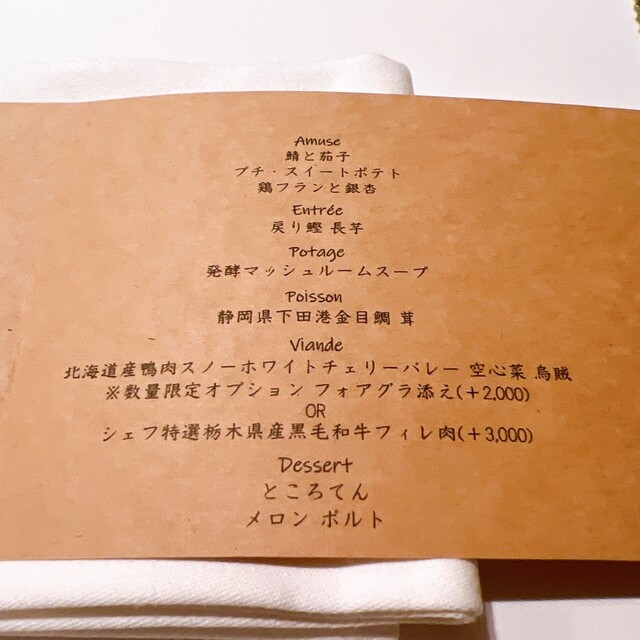 Amuse
鯖と茄子
プチ・スイートポテト
鶏フランと銀杏
Entrée
戻り鰹 長芋
Potage
発酵マッシュルームスープ
Poisson
静岡県下田港金目鯛 茸
Viande
北海道産鴨肉スノーホワイトチェリーバレー 空心菜 烏賊
※数量限定オプション フォアグラ添え(+2,000)
OR
シェフ特選栃木県産黒毛和牛フィレ肉(+3,000)
Dessert
ところてん
メロン ポルト